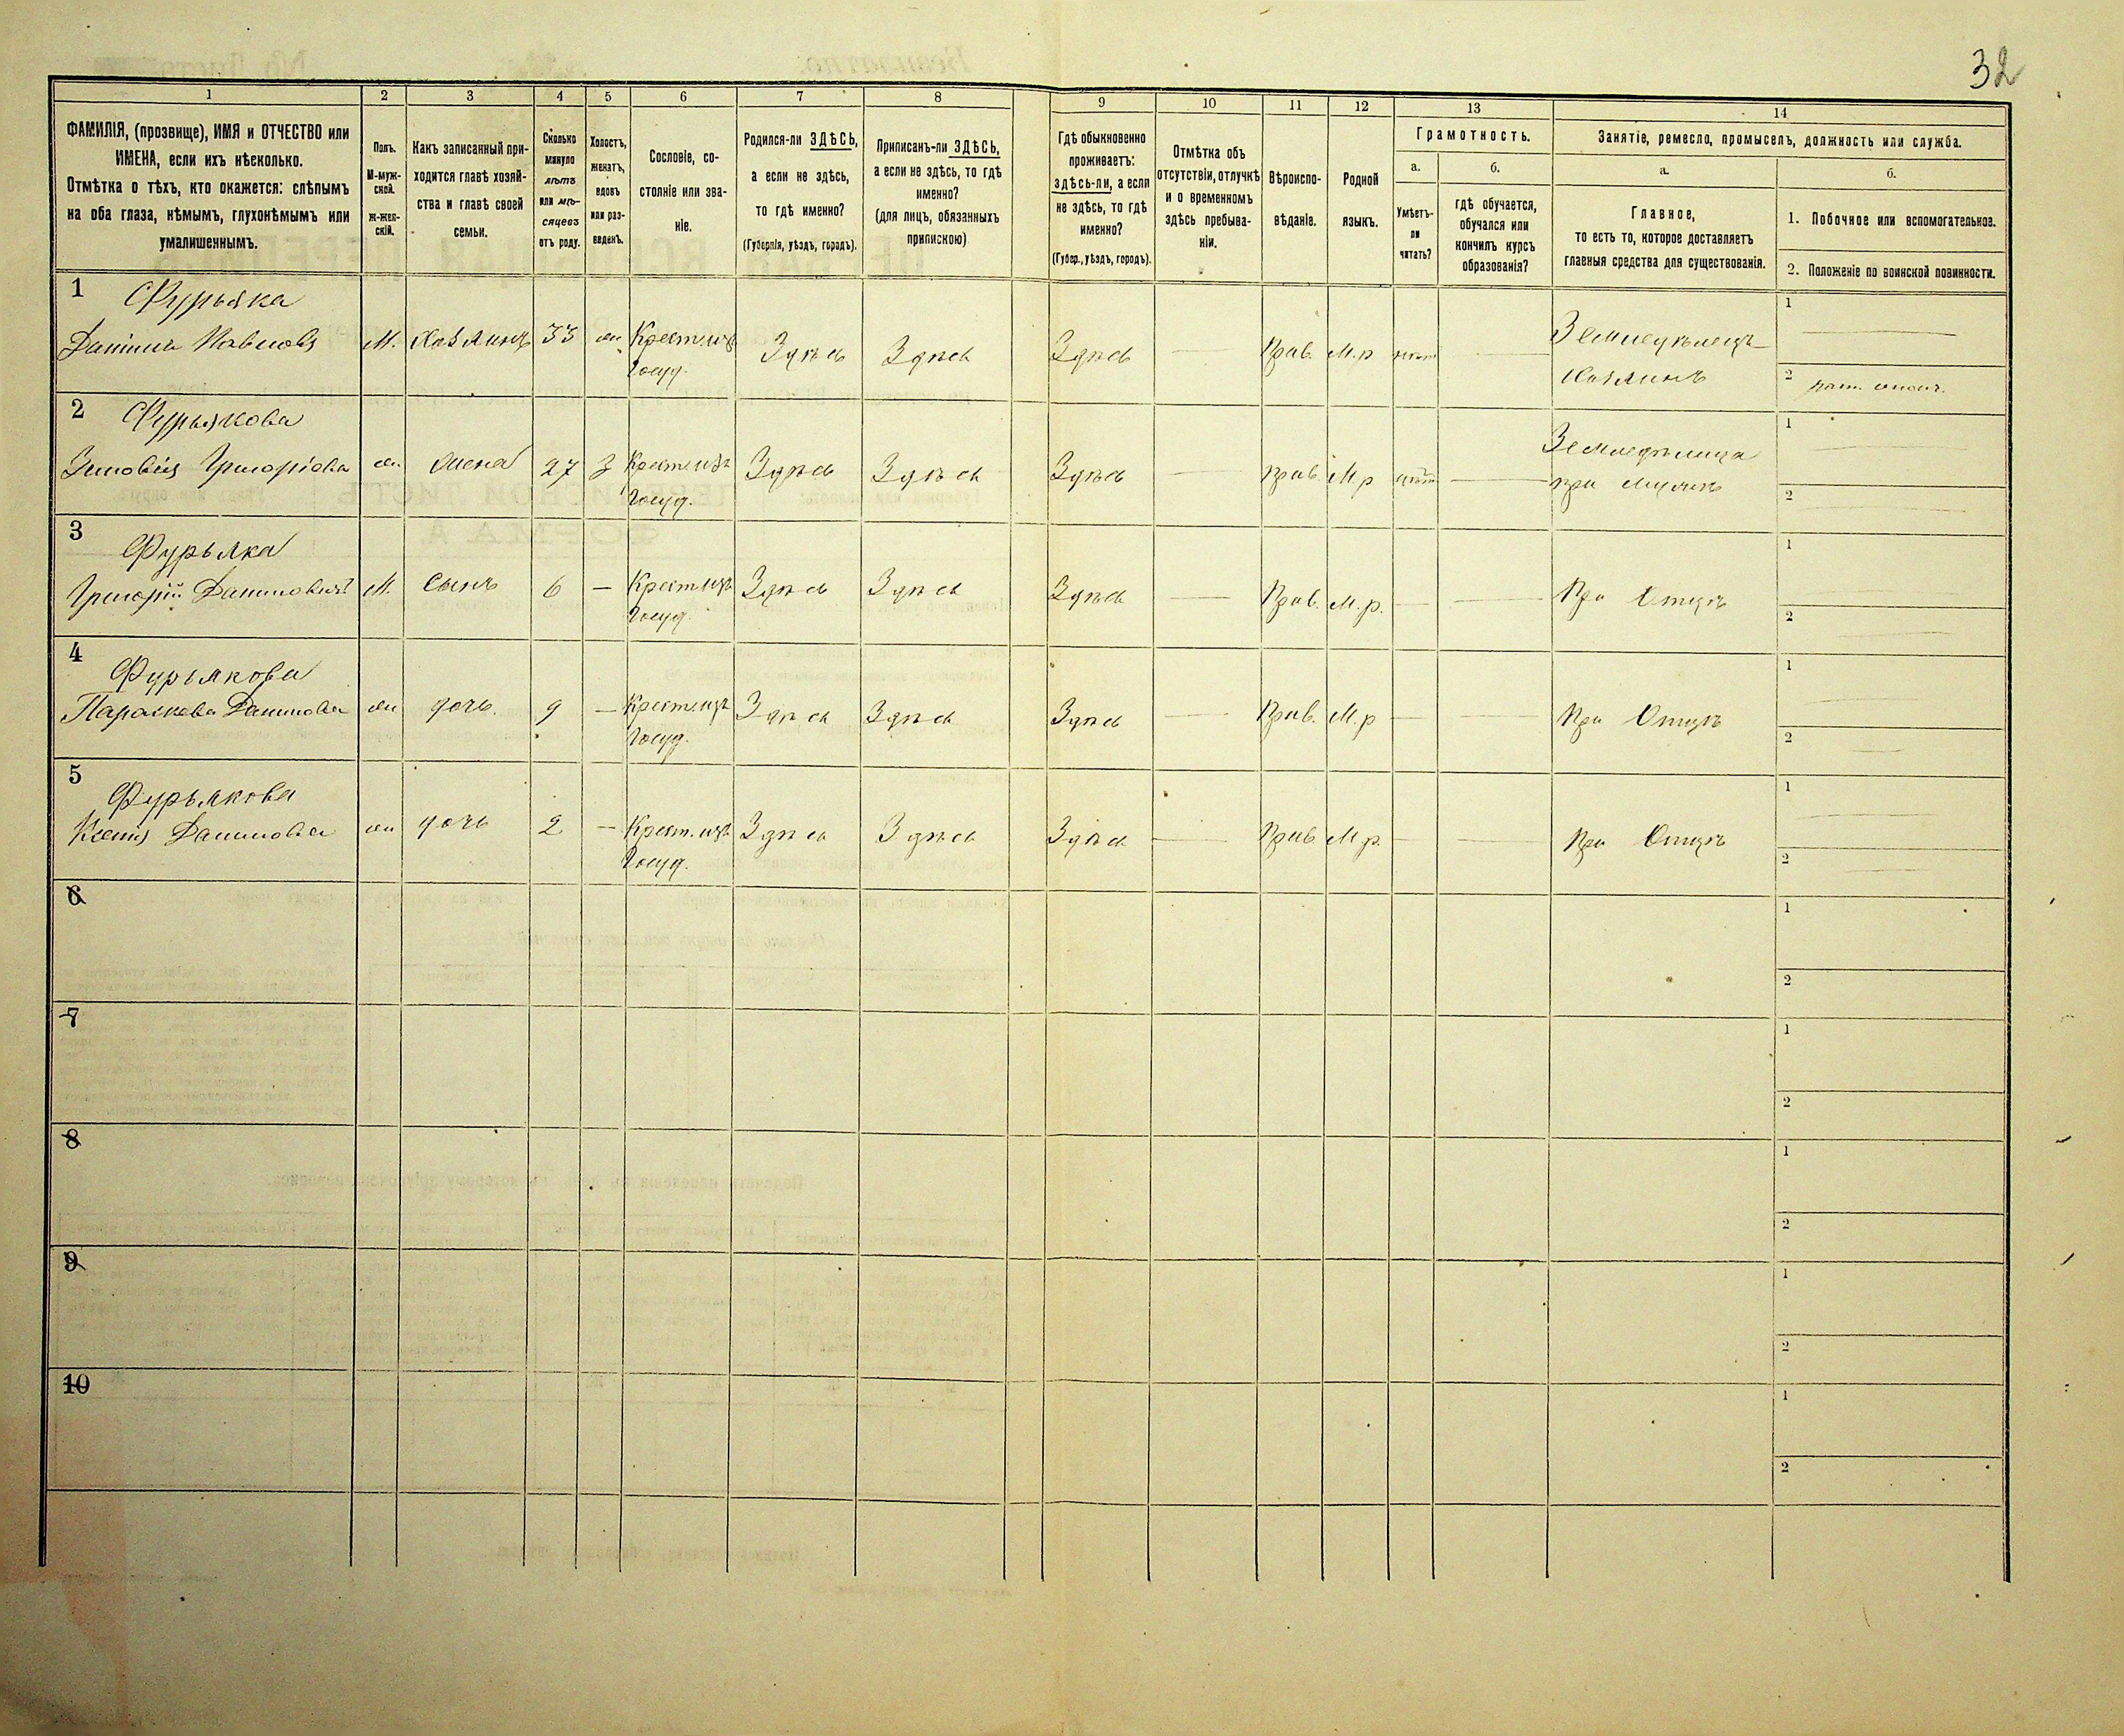 32
1 2 3 4 5 6 7 8 9 10 11 12 13 14
ФАМИЛІЯ, (прозвище), ИМЯ и ОТЧЕСТВО или
ИМЕНА, если ихъ нѣсколько.
Отмѣтка о тѣхъ, кто окажется: слѣпымъ
на оба глаза, нѣмымъ, глухонѣмымъ или
умалишеннымъ.
Полъ.
М-муж-
ской.
ж-жен-
скій.
Какъ записанный при-
ходится главѣ хозяй-
ства и главѣ своей
семьи.
Сколько
минуло
лѣтъ
или мѣ-
сяцевъ
отъ роду.
Холостъ,
женатъ,
вдовъ
или раз-
веденъ.
Сословіе, со-
стояніе или зва-
ніе.
Родился-ли ЗДѢСЬ,
а если не здѣсь,
то гдѣ именно?
(Губернія, уѣздъ, городъ).
Приписанъ-ли ЗДѢСЬ,
а если не здѣсь, то гдѣ
именно?
(для лицъ, обязанныхъ
припискою)
Гдѣ обыкновенно
проживаетъ:
здѣсь-ли, а если
не здѣсь, то гдѣ
именно?
(Губер., уѣздъ, городъ).
Отмѣтка объ
отсутствіи, отлучкѣ
и о временномъ
здѣсь пребыва-
ніи.
Вѣроиспо-
вѣданіе.
Родной
языкъ.
Грамотность.
а.
Умѣетъ-
ли
читать?
б.
гдѣ обучается,
обучался или
кончилъ курсъ
образованія?
Занятіе, ремесло, промыселъ, должность или служба.
а.
Главное,
то есть то, которое доставляетъ
главныя средства для существованія.
б.
1. Побочное или вспомогательное.
2. Положеніе по воинской повинности.
1 Фурьяка
Даніилъ Павловъ М. Хозяинъ 33 ж. Крест. изъ Здѣсь Здѣсь Здѣсь — Прав. М. р нѣтъ — Земледѣлецъ 1 —
Госуд. Хозяинъ 2 рат. ополч.
2 Фурьякова
Зиновія Григоріова ж. жена 27 З Крест. изъ Здѣсь Здѣсь Здѣсь — Прав. М р нѣтъ — Земледѣлица 1 —
Госуд. при мужѣ 2 —
3 Фурьяка
Григорій Даниловичъ М. Сынъ 6 — Крест. изъ Здѣсь Здѣсь Здѣсь — Прав. М. р. — — При Отцѣ 1
Госуд. 2 —
4 Фурьякова
Параскева Данилова ж дочь. 9 — Крест. изъ Здѣсь Здѣсь Здѣсь — Прав. М. р — — При Отцѣ 1 —
Госуд. 2 —
5 Фурьякова
Ксенія Данилова ж дочь 2 — Крест. изъ Здѣсь Здѣсь Здѣсь — Прав М р. — — При Отцѣ 1 —
Госуд. 2 —
6 1
2
7 1
2
8 1
2
9 1
2
10 1
2